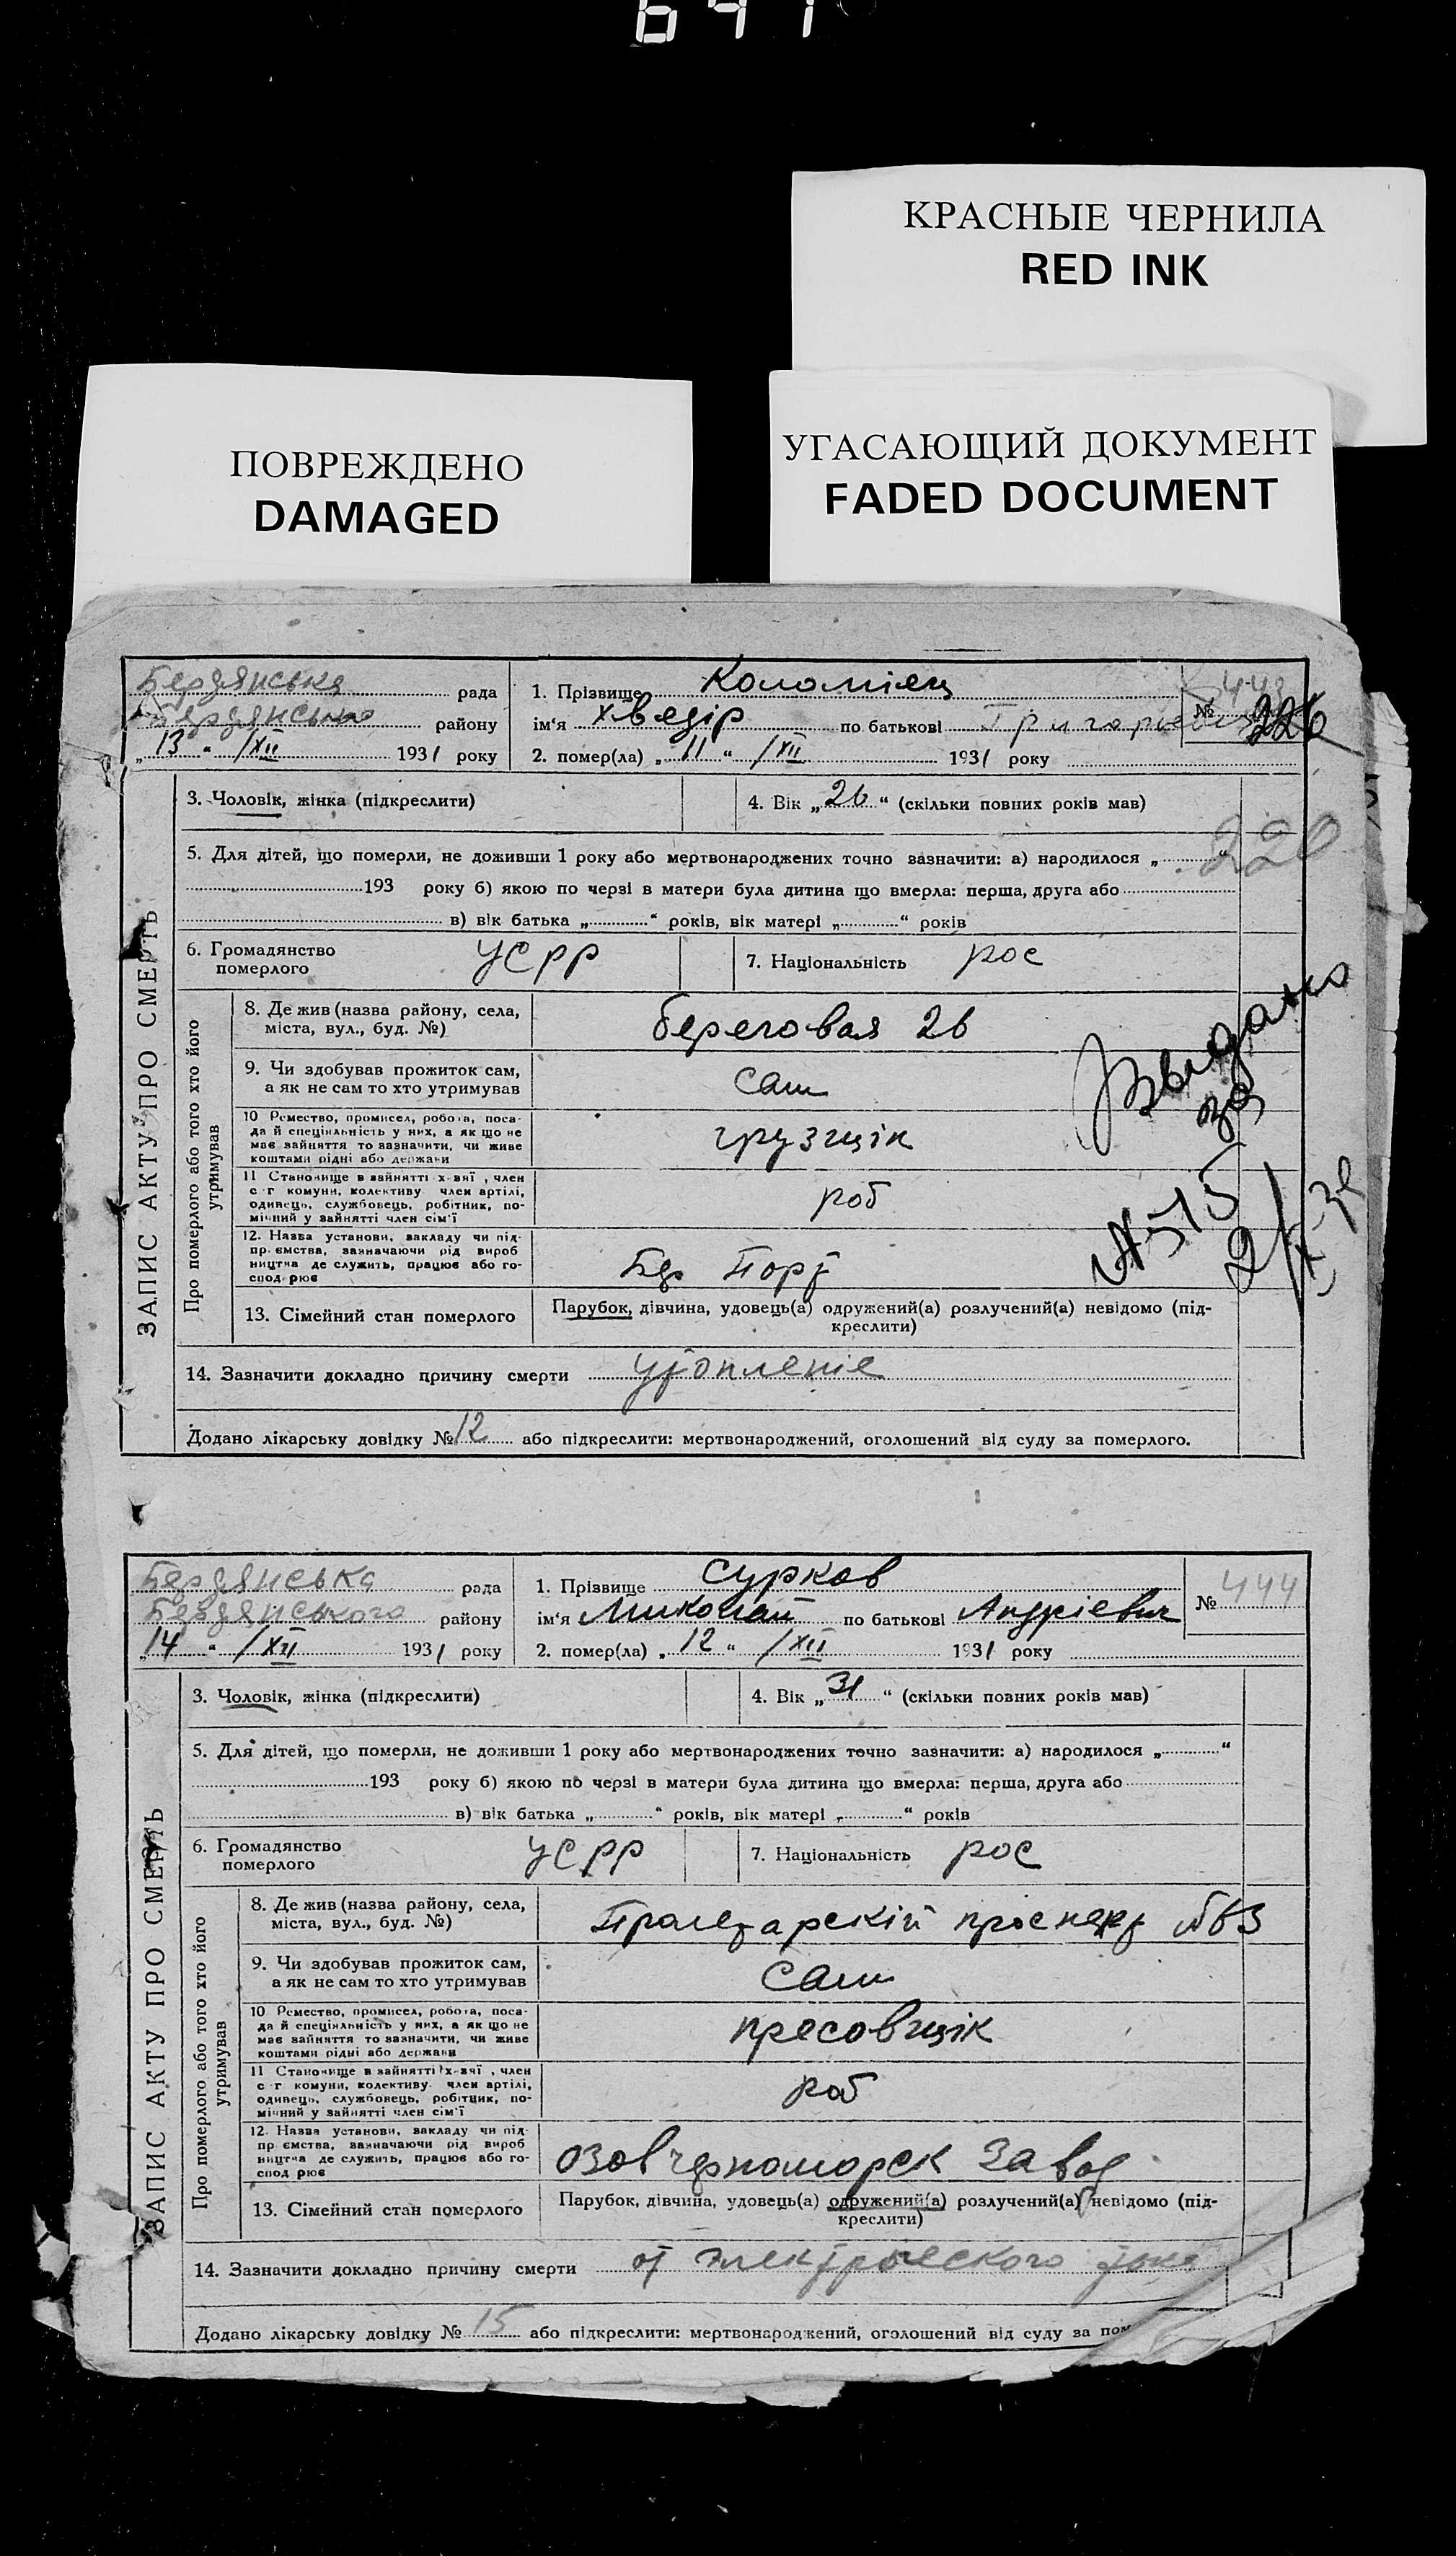 641
КРАСНЫЕ ЧЕРНИЛА
RED INK
ПОВРЕЖДЕНО
DAMAGED
УГАСАЮЩИЙ ДОКУМЕНТ
FADED DOCUMENT
ЗАПИС АКТУ ПРО СМЕРТЬ
Бердянська рада
Бердянського району
„13“ /XII 1931 року
1. Прізвище Коломієц
ім‘я Хведір по батькові Григорьевич
2. помер(ла) „11“ /XII 1931 року
№ 443
226
3. Чоловік, жінка (підкреслити)
4. Вік „26“ (скільки повних років мав)
220
5. Для дітей, що померли, не доживши 1 року або мертвонароджених точно зазначити: а) народилося „ “
193 року б) якою по черзі в матери була дитина що вмерла: перша, друга або
в) вік батька „ “ років, вік матері „ “ років
6. Громадянство померлого УСРР
7. Національність рос
Про померлого або того хто його утримував
8. Де жив (назва району, села,
міста, вул., буд. №) береговая 26
9. Чи здобував прожиток сам,
а як не сам то хто утримував сам
10 Ремество, промисел, робота, поса-
да й спеціяльність у них, а як що не
має зайняття то зазначити, чи живе
коштами рідні або держави грузчік
11 Становище в зайнятті х-вяї, член
с г комуни, колективу член артілі,
одинець, службовець, робітник, по-
мічний у зайнятті член сім‘ї роб
12. Назва установи, закладу чи під-
пр ємства, зазначаючи рід вироб
ництва де служить, працює або го-
спод рює Бер Порт
13. Сімейний стан померлого Парубок, дівчина, удовець(а) одружений(а) розлучений(а) невідомо (під-
креслити)
14. Зазначити докладно причину смерти утопленіе
Додано лікарську довідку № 12 або підкреслити: мертвонароджений, оголошений від суду за померлого.
Выдано
за
№515
2/X-39
ЗАПИС АКТУ ПРО СМЕРТЬ
Бердянська рада
Бердянського району
„14“ /XII 1931 року
1. Прізвище Сурков
ім‘я Миколай по батькові Андріевич
2. помер(ла) „12“ /XII 1931 року
№ 444
3. Чоловік, жінка (підкреслити)
4. Вік „31“ (скільки повних років мав)
5. Для дітей, що померли, не доживши 1 року або мертвонароджених точно зазначити: а) народилося „ “
193 року б) якою по черзі в матери була дитина що вмерла: перша, друга або
в) вік батька „ “ років, вік матері „ “ років
6. Громадянство померлого УСРР
7. Національність рос
Про померлого або того хто його утримував
8. Де жив (назва району, села,
міста, вул., буд. №) Пролетарскій проспект №63
9. Чи здобував прожиток сам,
а як не сам то хто утримував сам
10 Ремество, промисел, робота, поса-
да й спеціяльність у них, а як що не
має зайняття то зазначити, чи живе
коштами рідні або держави пресовщік
11 Становище в зайнятті х-вяї, член
с г комуни, колективу член артілі,
одинець, службовець, робітник, по-
мічний у зайнятті член сім‘ї роб
12. Назва установи, закладу чи під-
пр ємства, зазначаючи рід вироб
ництва де служить, працює або го-
спод рює Озовчерноморск Завод
13. Сімейний стан померлого Парубок, дівчина, удовець(а) одружений(а) розлучений(а) невідомо (під-
креслити)
14. Зазначити докладно причину смерти от электрического тока
Додано лікарську довідку № 15 або підкреслити: мертвонароджений, оголошений від суду за пом